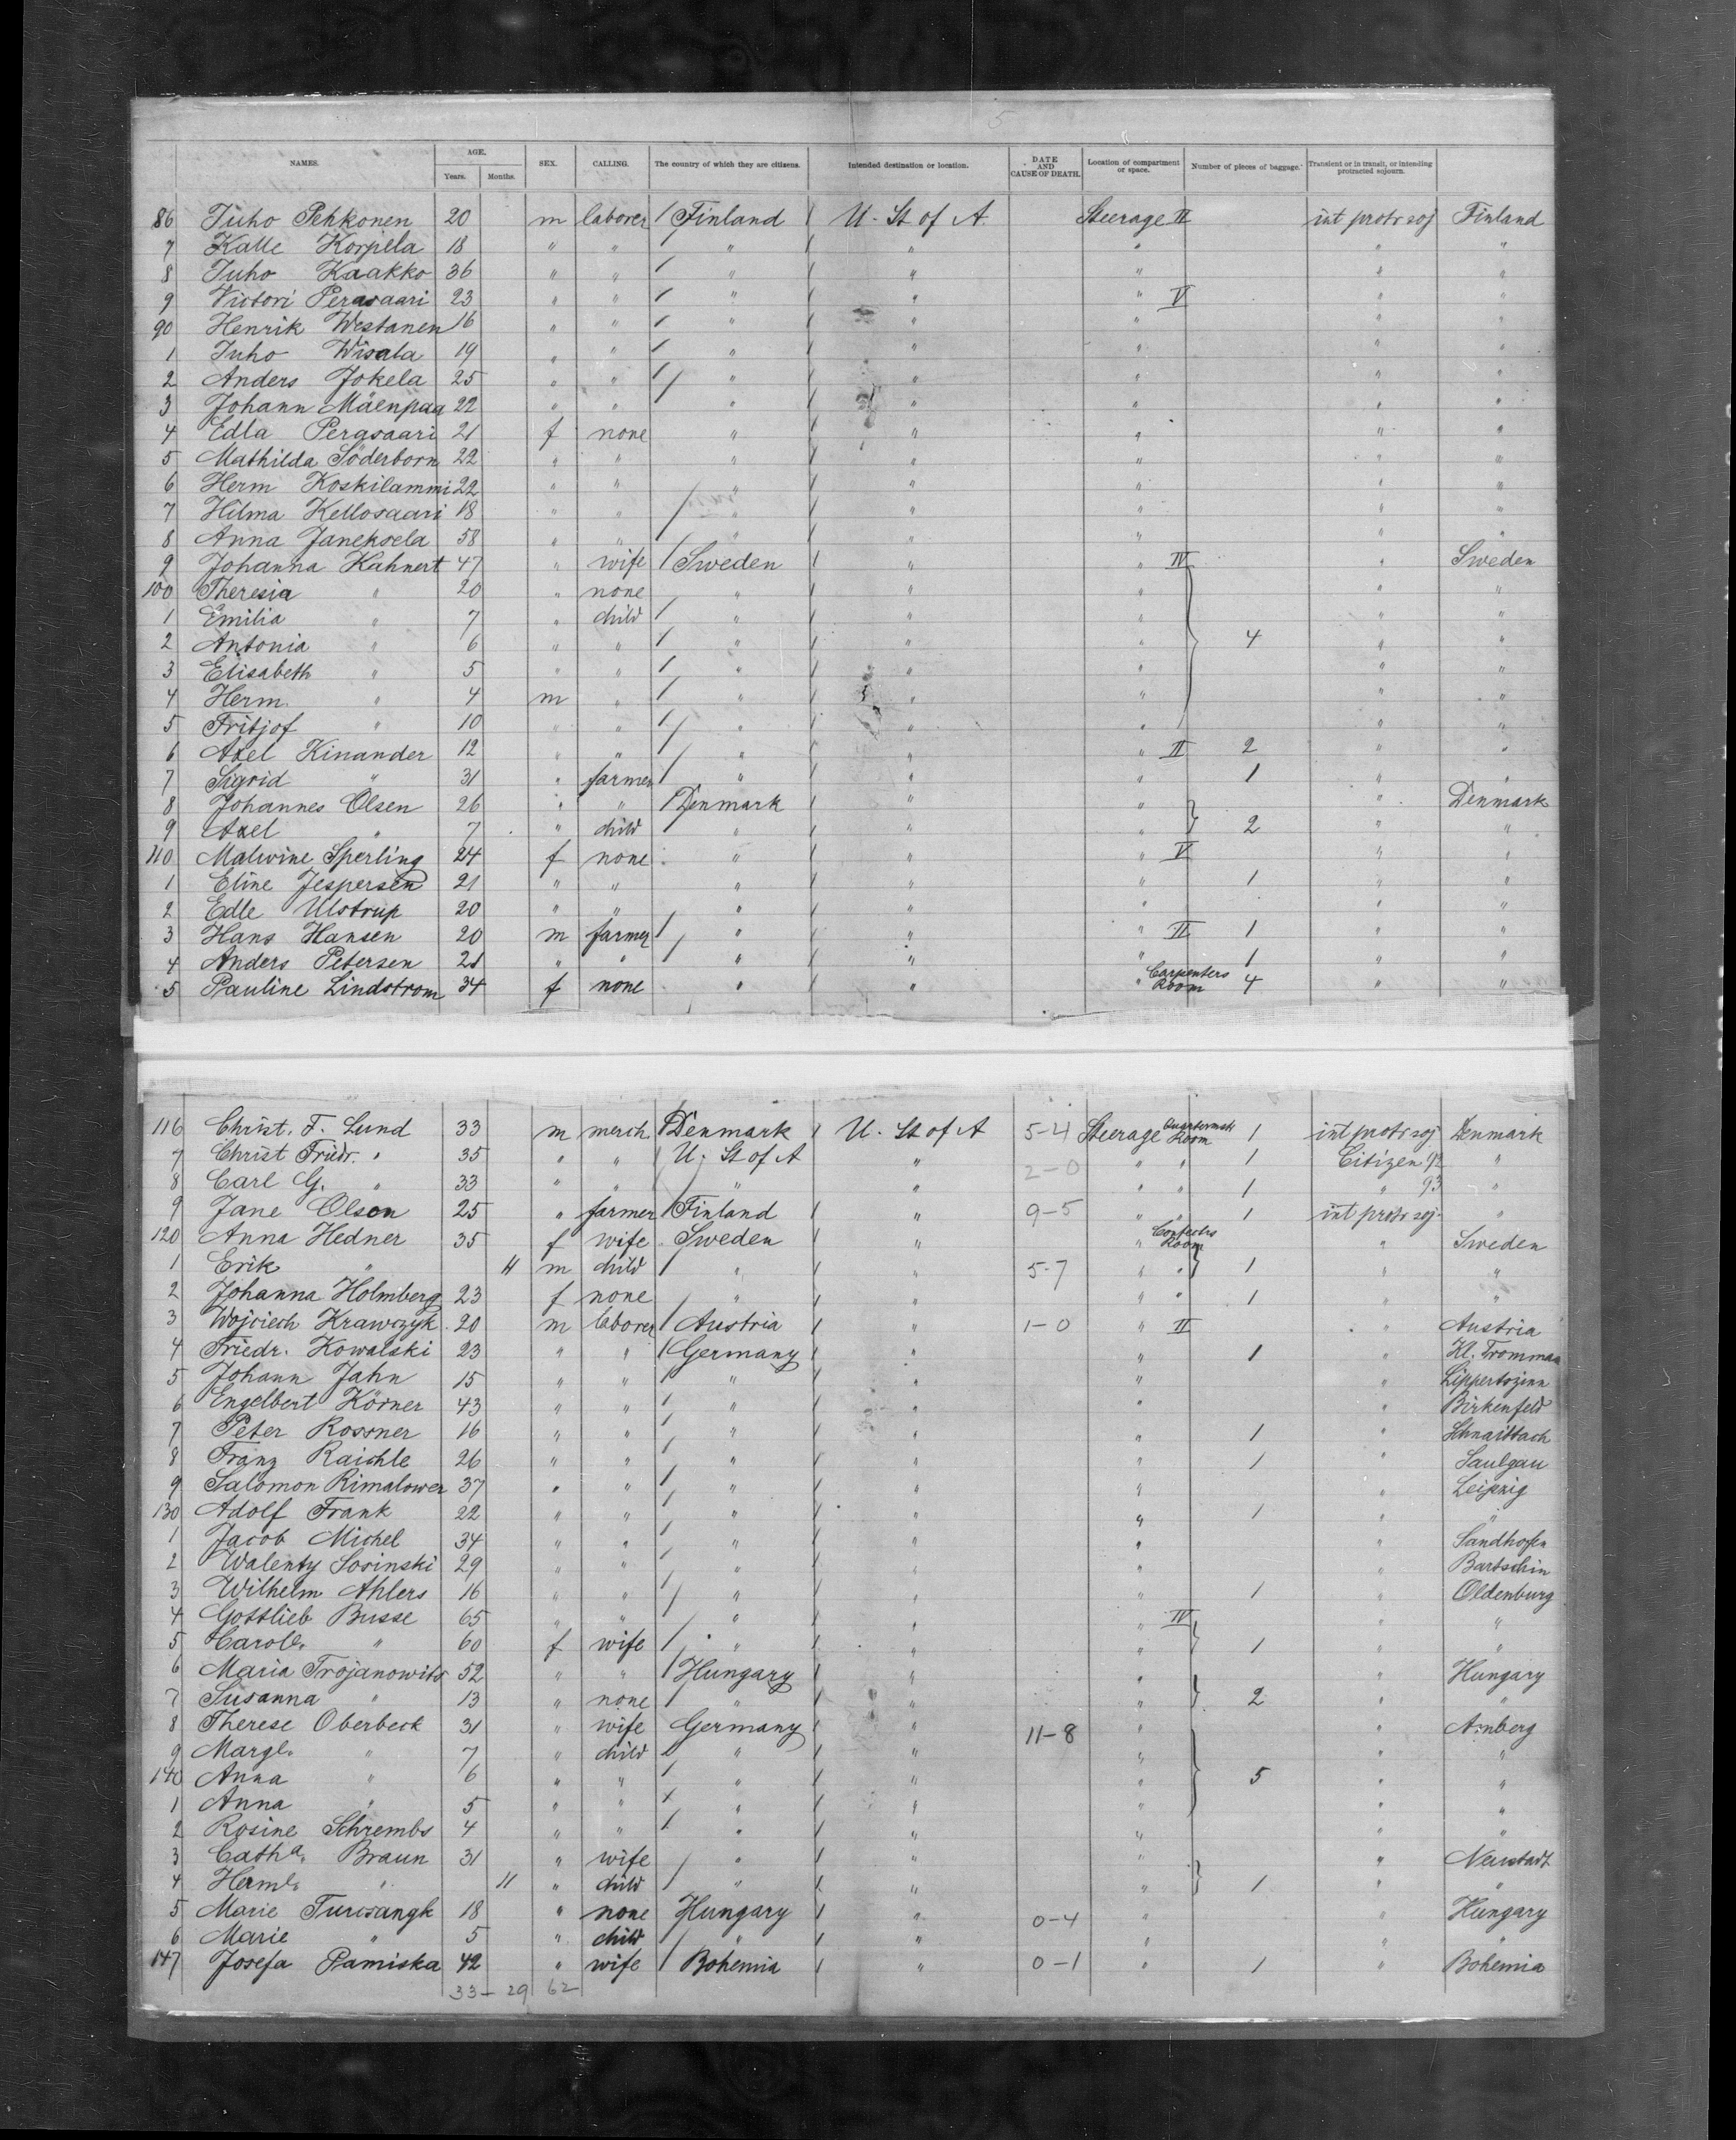 5
NAMES. AGE. Years. Months. SEX. CALLING. The country of which they are citizens. Intended destination or location. DATE AND CAUSE OF DEATH. Location of compartment or space. Number of pieces of baggage. Transient or in transit, or intending protracted sojourn.
86 Juho Pehkonen 20 m laborer / Finland / U. St of A. Steerage II int protr soj Finland
7 Kalle Korpela 18 " " / " / " " " "
8 Juho Kaakko 36 " " / " / " " " "
9 Victori Perasaari 23 " " / " / " " V " "
90 Henrik Westanen 16 " " / " / " " " "
1 Juho Wisala 19 " " / " / " " " "
2 Anders Jokela 25 " " / " / " " " "
3 Johann Mäenpaa 22 " " / " / " " " "
4 Edla Perasaari 21 f none " / " " " "
5 Mathilda Söderborn 22 " " " / " " " "
6 Herm Koskilammi 22 " " " / " " " "
7 Hilma Kellosaari 18 " " / " / " " " "
8 Anna Janeksela 58 " " " / " " " "
9 Johanna Kahnert 47 " wife / Sweden / " " IV " Sweden
100 Theresia " 20 " none " / " " " "
1 Emilia " 7 " child / " / " " " "
2 Antonia " 6 " " / " / " " 4 " "
3 Elisabeth " 5 " " / " / " " " "
4 Herm. " 4 m " / " / " " " "
5 Fritjof " 10 " " / " / " " " "
6 Axel Kinander 12 " " / " / " " II 2 " "
7 Sigrid " 31 " farmer / " / " " 1 " "
8 Johannes Olsen 26 " " / Denmark / " " " Denmark
9 Axel " 7 " child " / " " 2 " "
110 Malwine Sperling 24 f none " / " " V " "
1 Eline Jespersen 21 " " " / " " 1 " "
2 Edle Ulstrup 20 " " " / " " " "
3 Hans Hansen 20 m farmer / " / " " II 1 " "
4 Anders Petersen 21 " " / " / " " 1 " "
5 Pauline Lindstrom 34 f none " " " Carpenters Room 4 " "
116 Christ. F. Lund 33 m merch / Denmark / U. St of A 5-4 Steerage Room 1 int protr soj Denmark
7 Christ Friedr. " 35 " " / U. St of A " 2-0 " " 1 Citizen 92 "
8 Carl G. " 33 " " / " " " " 1 " 93 "
9 Jane Olson 25 " farmer / Finland / " 9-5 " " 1 int protr soj. "
120 Anna Hedner 35 f wife Sweden / " " Room " Sweden
1 Erik " 11 m child / " / " 5-7 " " 1 " "
2 Johanna Holmberg 23 f none " / " " " 1 " "
3 Wojciech Krawczyk 20 m laborer / Austria / " 1-0 " II " Austria
4 Friedr. Kowalski 23 " " / Germany / " " 1 " Kl. Tromman
5 Johann Jahn 15 " " / " / " " "
6 Engelbert Körner 43 " " / " / " " " Birkenfeld
7 Peter Rossner 16 " " / " / " " 1 " Schnaittach
8 Franz Raichle 26 " " / " / " " 1 " Saulgau
9 Salomon Rimalower 37 " " / " / " " " Leipzig
130 Adolf Frank 22 " " / " / " " 1 " "
1 Jacob Michel 34 " " / " / " " " Sandhofen
2 Walenty Sosinski 29 " " / " / " " " Bartschin
3 Wilhelm Ahlers 16 " " / " / " " 1 " Oldenburg
4 Gottlieb Busse 65 " " / " / " " IV " "
5 Carole. " 60 f wife / " / " " 1 " "
6 Maria Trojanowits 52 " " / Hungary / " " " Hungary
7 Susanna " 13 " none / " / " " 2 " "
8 Therese Oberbeck 31 " wife Germany / " 11-8 " " Arnberg
9 Margl. " 7 " child / " / " " " "
140 Anna " 6 " " / " / " " 5 " "
1 Anna " 5 " " / " / " " " "
2 Rosine Schrembs 4 " " / " / " " " "
3 Catha. Braun 31 " wife / " / " " " Neustadt
4 Herml. " 11 " child / " / " " 1 " "
5 Marie Turcsangk 18 " none Hungary / " 0-4 " " Hungary
6 Marie " 5 " child / " / " " " "
147 Josefa Pamiska 42 " wife / Bohemia / " 0-1 " 1 " Bohemia
33-29 62